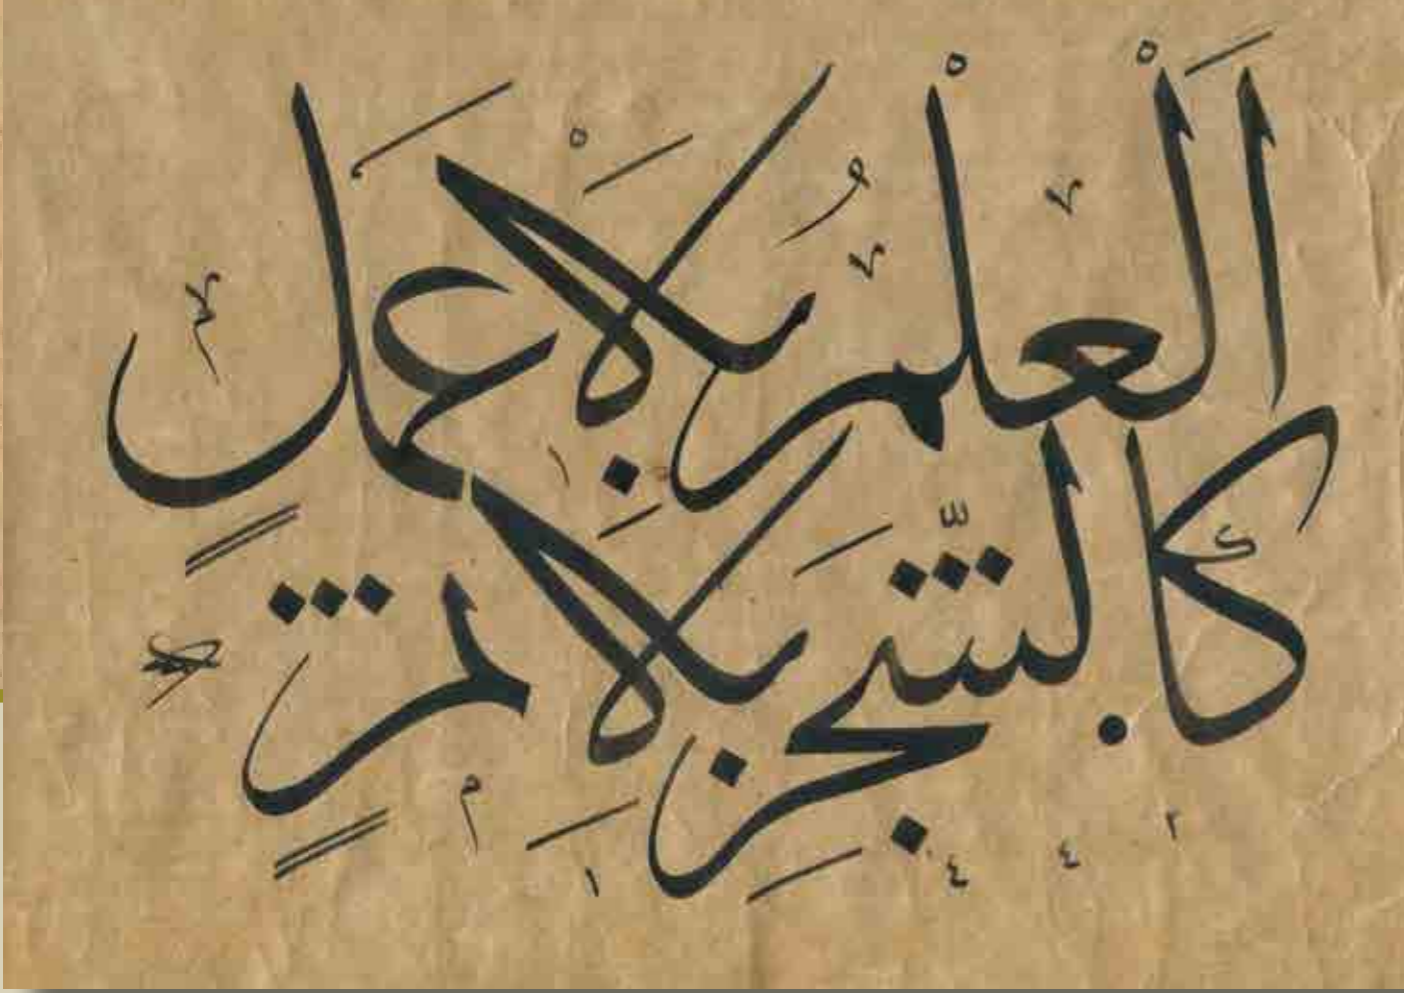 اَلْعلْمُ بِلَاْ عمَلٍ
كالشّجَرِ بِلا ثمرٍ
١٤٤٢